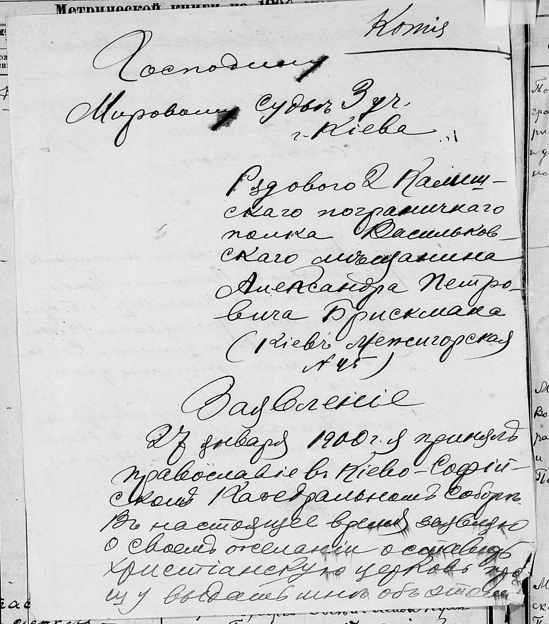 Метрической книги на 190
Копія
Господину
Мировому Судьѣ 3 уч.
г. Кіева
Рядового 2 Калиш-
скаго пограничнаго
полка Васильков-
скаго мѣщанина
Александра Петро-
вича Брискмана
(Кіевъ Межигорская
№ 45)
Заявленіе
27 января 1900 г. я принялъ
православіе въ Кіево-Софій-
скомъ Кафедральномъ Соборѣ.
Въ настоящее время заявляю
о своемъ желаніи оставить
христіанскую церковь про-
шу выдать мнѣ объ этомъ